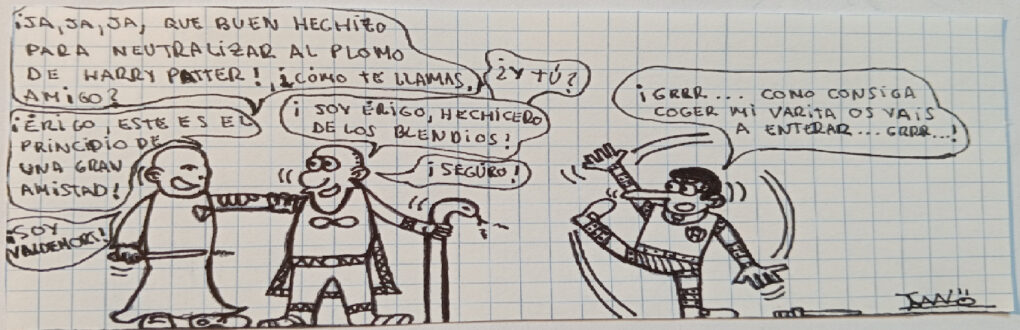 ¡JA, JA, JA, QUE BUEN HECHIZO
PARA NEUTRALIZAR AL PLOMO
DE HARRY PATTER! ¿CÓMO TE LLAMAS,
AMIGO?
¡SOY ÉRIGO, HECHICERO
DE LOS BLENDIOS!
¿Y TÚ?
¡SOY
VALDEMORT!
¡ÉRIGO, ESTE ES EL
PRINCIPIO DE
UNA GRAN
AMISTAD!
¡SEGURO!
¡GRRR.... COMO CONSIGA
COGER MI VARITA OS VAIS
A ENTERAR... GRRR...!